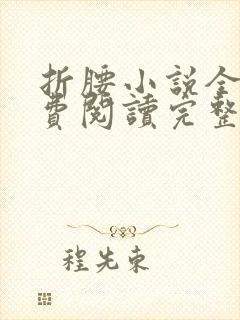 折腰小說全
費閱讀完整
程先東